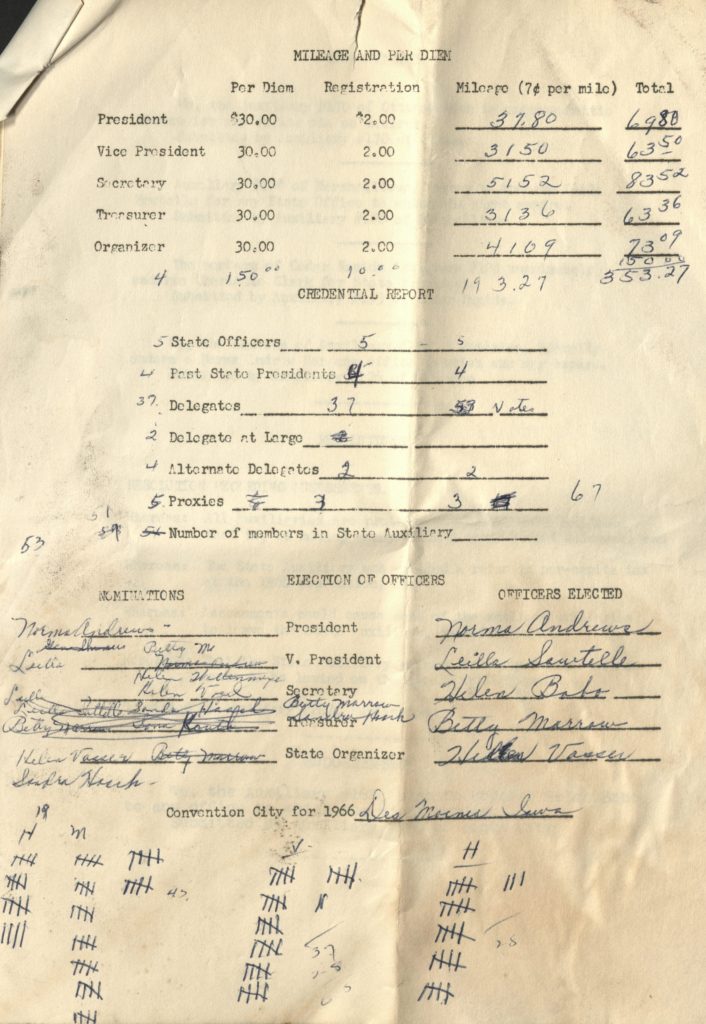 MILEAGE AND PER DIEM
Per Diem Registration Mileage (7¢ per mile) Total
President $30.00 $2.00 37.80 69 80
Vice President 30.00 2.00 3150 63 50
Secretary 30.00 2.00 5152 83 52
Treasurer 30.00 2.00 3136 63 36
Organizer 30.00 2.00 4109 73 09
4 150 00 10.00 193.27 353.27
CREDENTIAL REPORT
5 State Officers 5 - 5
4 Past State Presidents 4 4
37 Delegates 37 53 Votes
2 Delegate at Large 2
4 Alternate Delegates 2 2
5 Proxies 3 3 67
51
53 54 Number of members in State Auxiliary
ELECTION OF OFFICERS
NOMINATIONS OFFICERS ELECTED
Norma Andrews - President Norma Andrews
Betty M
Leilla Norma Andrew V. President Leilla Sawtelle
Helen
Helen Secretary Helen Bobo
Betty Marrow
Betty Marrow Treasurer Betty Marrow
Helen Vasser Betty Marrow State Organizer Helen Vasser
Sandra
Convention City for 1966 Des Moines Iowa
19
H M V H
47
37
28